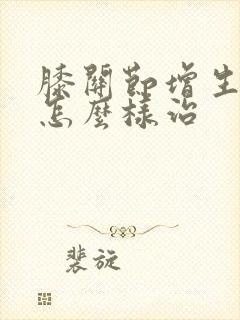 膝關節增生
怎麼樣治
裴旋